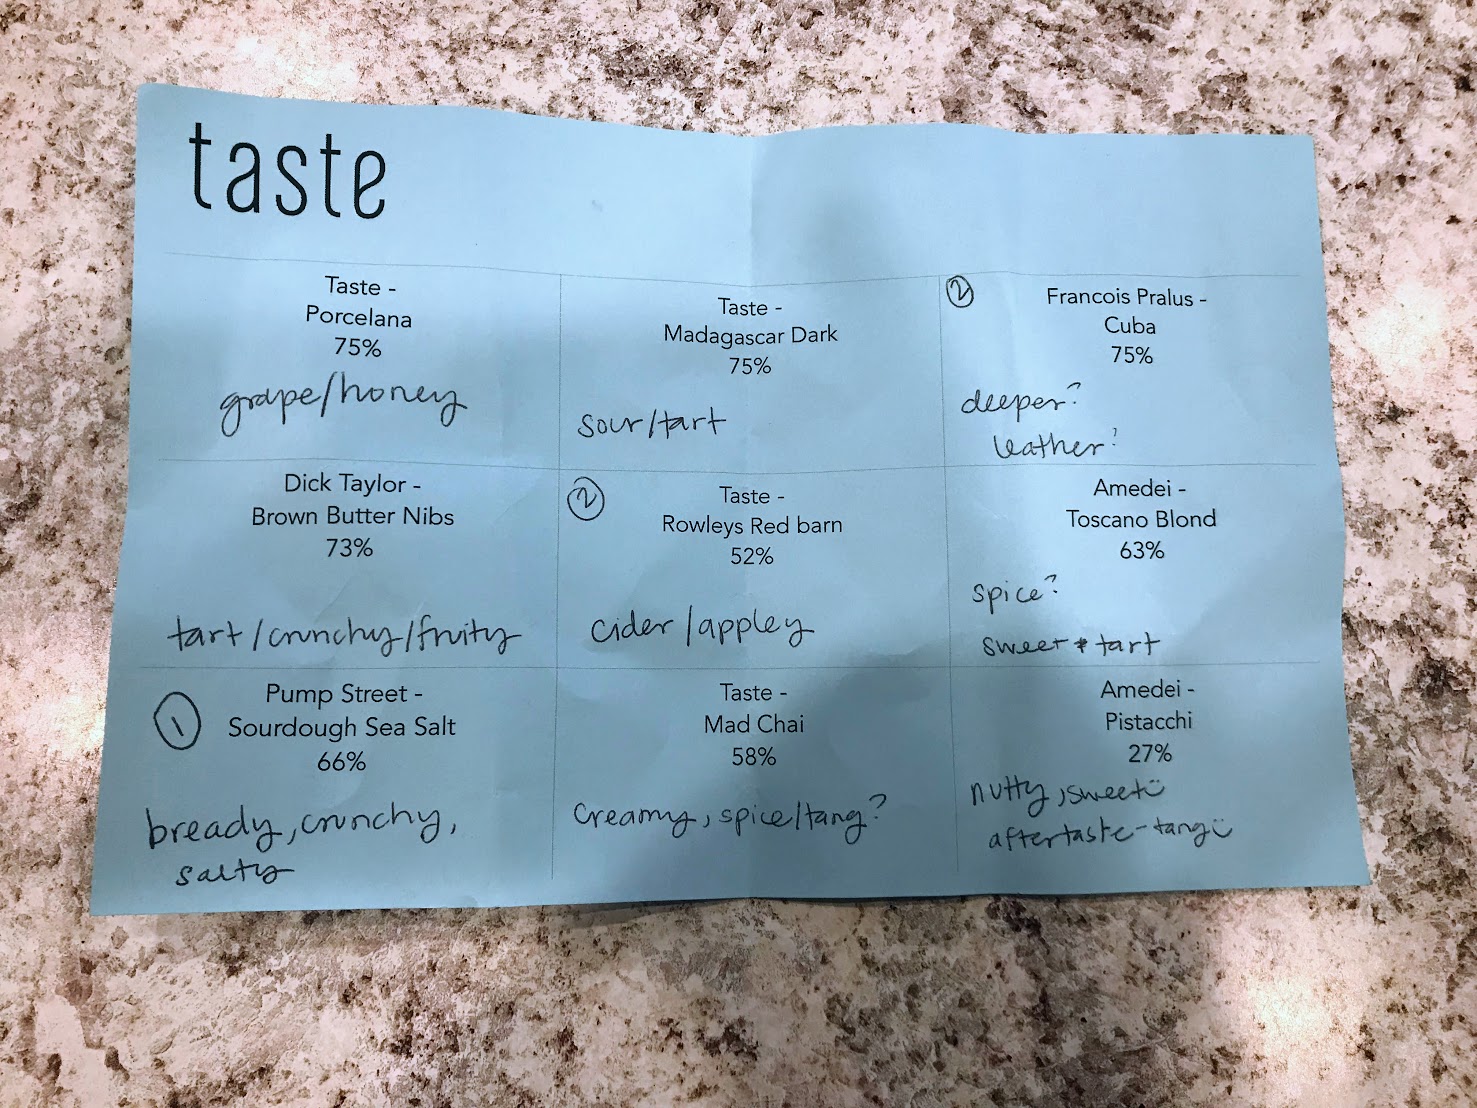 taste
Taste -
Porcelana
75%
grape/honey
Taste -
Madagascar Dark
75%
sour/tart
2
Francois Pralus -
Cuba
75%
deeper?
leather?
Dick Taylor -
Brown Butter Nibs
73%
tart/crunchy/fruity
2
Taste -
Rowleys Red barn
52%
cider/appley
Amedei -
Toscano Blond
63%
spice?
sweet + tart
1
Pump Street -
Sourdough Sea Salt
66%
bready, crunchy,
salty
Taste -
Mad Chai
58%
creamy, spice/tang?
Amedei -
Pistacchi
27%
nutty, sweet
aftertaste-tang